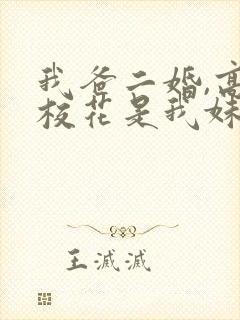 我爸二婚,高
校花是我妹
王滅滅